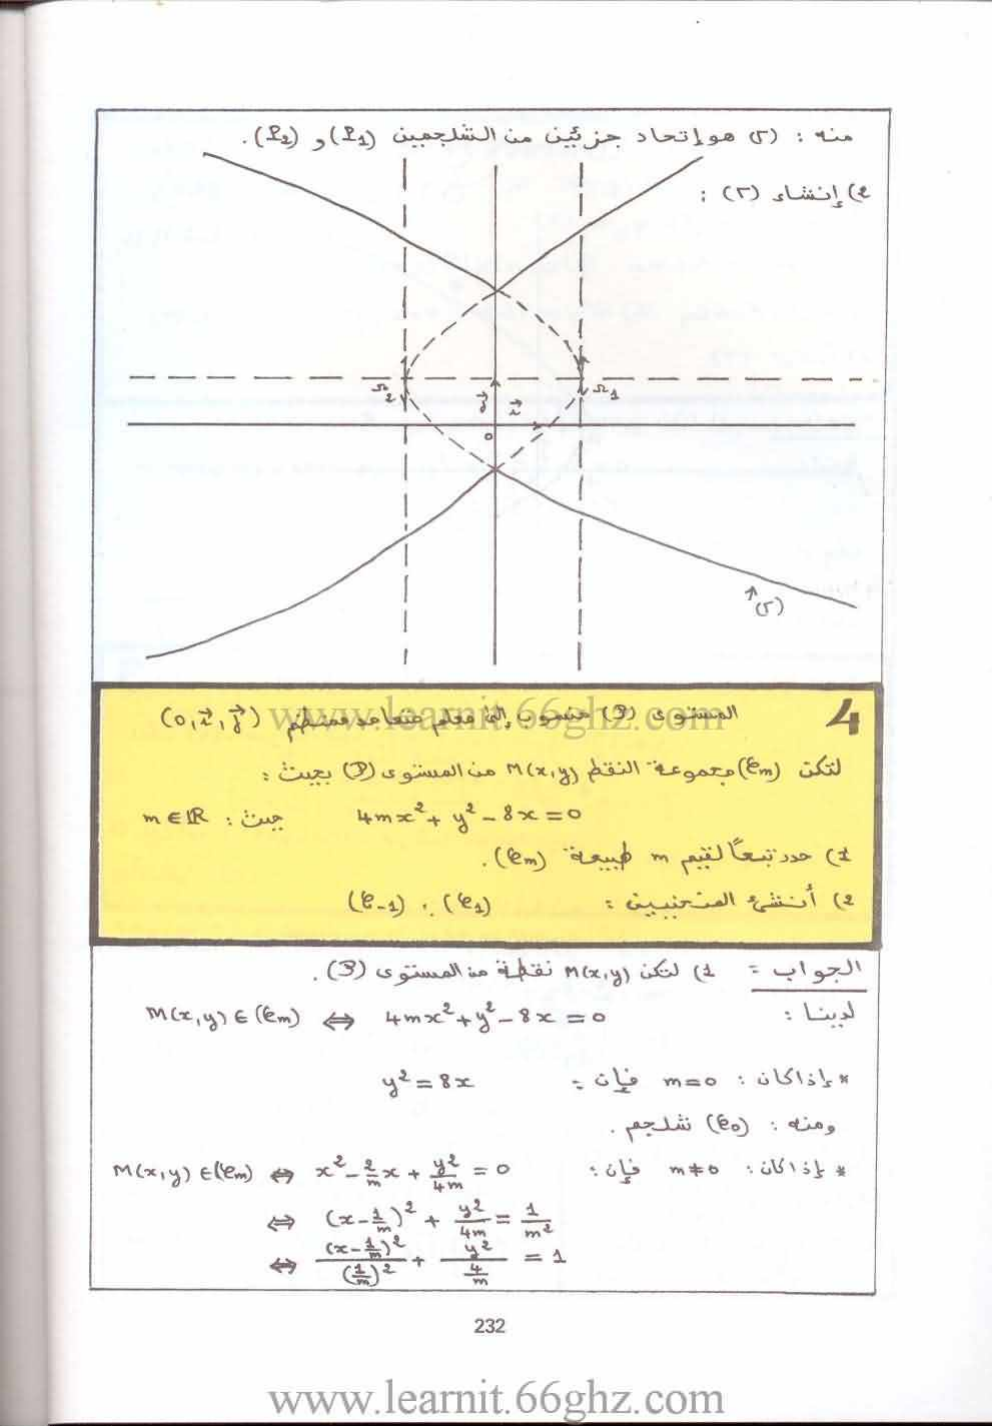 منه : (Γ) هو إتحاد جزئين من الشلجمين (P₁) و (P₂).
2) إنشاء (Γ) :
Ω₂
j⃗
i⃗
Ω₁
o
(Γ)
4
المستوى (P) منسوب إلى معلم متعامد ممنظم (o, i⃗, j⃗)
لتكن (ℰm) مجموعة النقط M(x,y) من المستوى (P) بحيث :
4mx² + y² - 8x = 0 حيث : m ∈ ℝ
1) حدد تبعاً لقيم m طبيعة (ℰm).
2) أنشئ المنحنيين : (ℰ₁) , (ℰ₋₁)
الجواب = 1) لتكن M(x,y) نقطة من المستوى (P).
لدينا : M(x,y) ∈ (ℰm) ⇔ 4mx² + y² - 8x = 0
* إذا كان : m=0 فإن : y² = 8x
ومنه : (ℰ₀) شلجم .
* إذا كان : m≠0 فإن : M(x,y) ∈ (ℰm) ⇔ x² - 2/m x + y²/4m = 0
⇔ (x - 1/m)² + y²/4m = 1/m²
⇔ (x - 1/m)²/(1/m)² + y²/(4/m) = 1
232
www.learnit.66ghz.com
www.learnit.66ghz.com